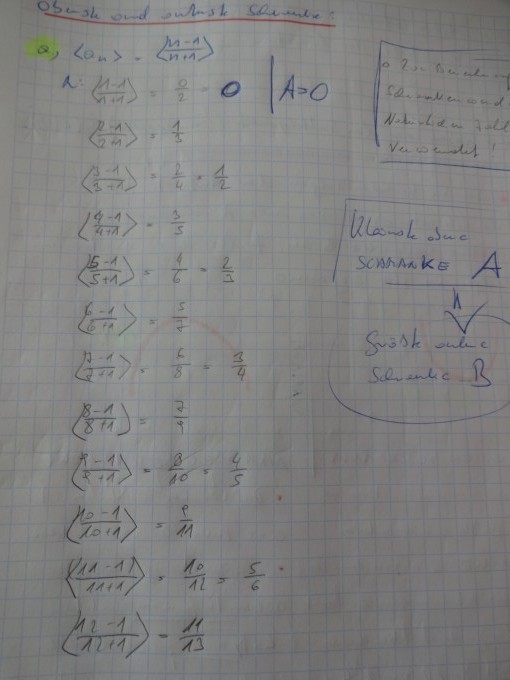 Oberste und unterste Schranke:
a) ⟨an⟩ = ⟨n-1/n+1⟩
1: ⟨1-1/1+1⟩ = 0/2 = 0 | A=0
⟨2-1/2+1⟩ = 1/3
⟨3-1/3+1⟩ = 2/4 = 1/2
⟨4-1/4+1⟩ = 3/5
⟨5-1/5+1⟩ = 4/6 = 2/3
⟨6-1/6+1⟩ = 5/7
⟨7-1/7+1⟩ = 6/8 = 3/4
⟨8-1/8+1⟩ = 7/9
⟨9-1/9+1⟩ = 8/10 = 4/5
⟨10-1/10+1⟩ = 9/11
⟨11-1/11+1⟩ = 10/12 = 5/6
⟨12-1/12+1⟩ = 11/13
Zur
Schranken
Verwendet!
Kleinste obere
SCHRANKE A
Größte untere
Schranke B